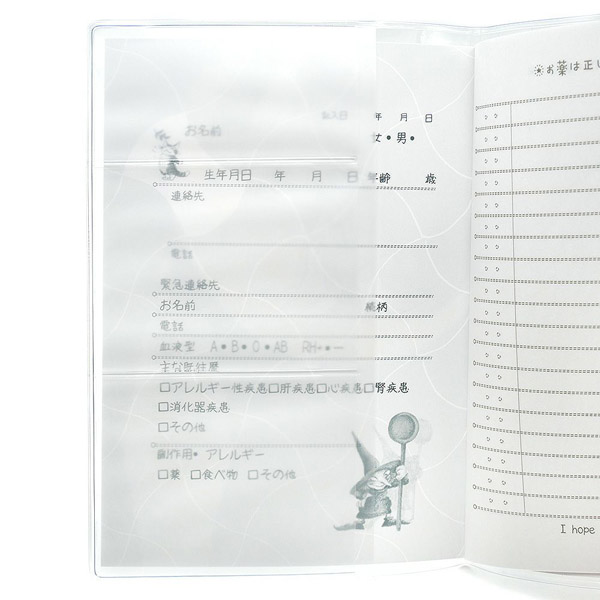 記入日 年 月 日
お名前 女・男・
生年月日 年 月 日 年齢 歳
連絡先
電話
緊急連絡先
お名前 続柄
電話
血液型 A・B・O・AB RH+・−
主な既往歴
□アレルギー性疾患□肝疾患□心疾患□腎疾患
□消化器疾患
□その他
副作用・アレルギー
□薬 □食べ物 □その他
お薬は正し
I hope